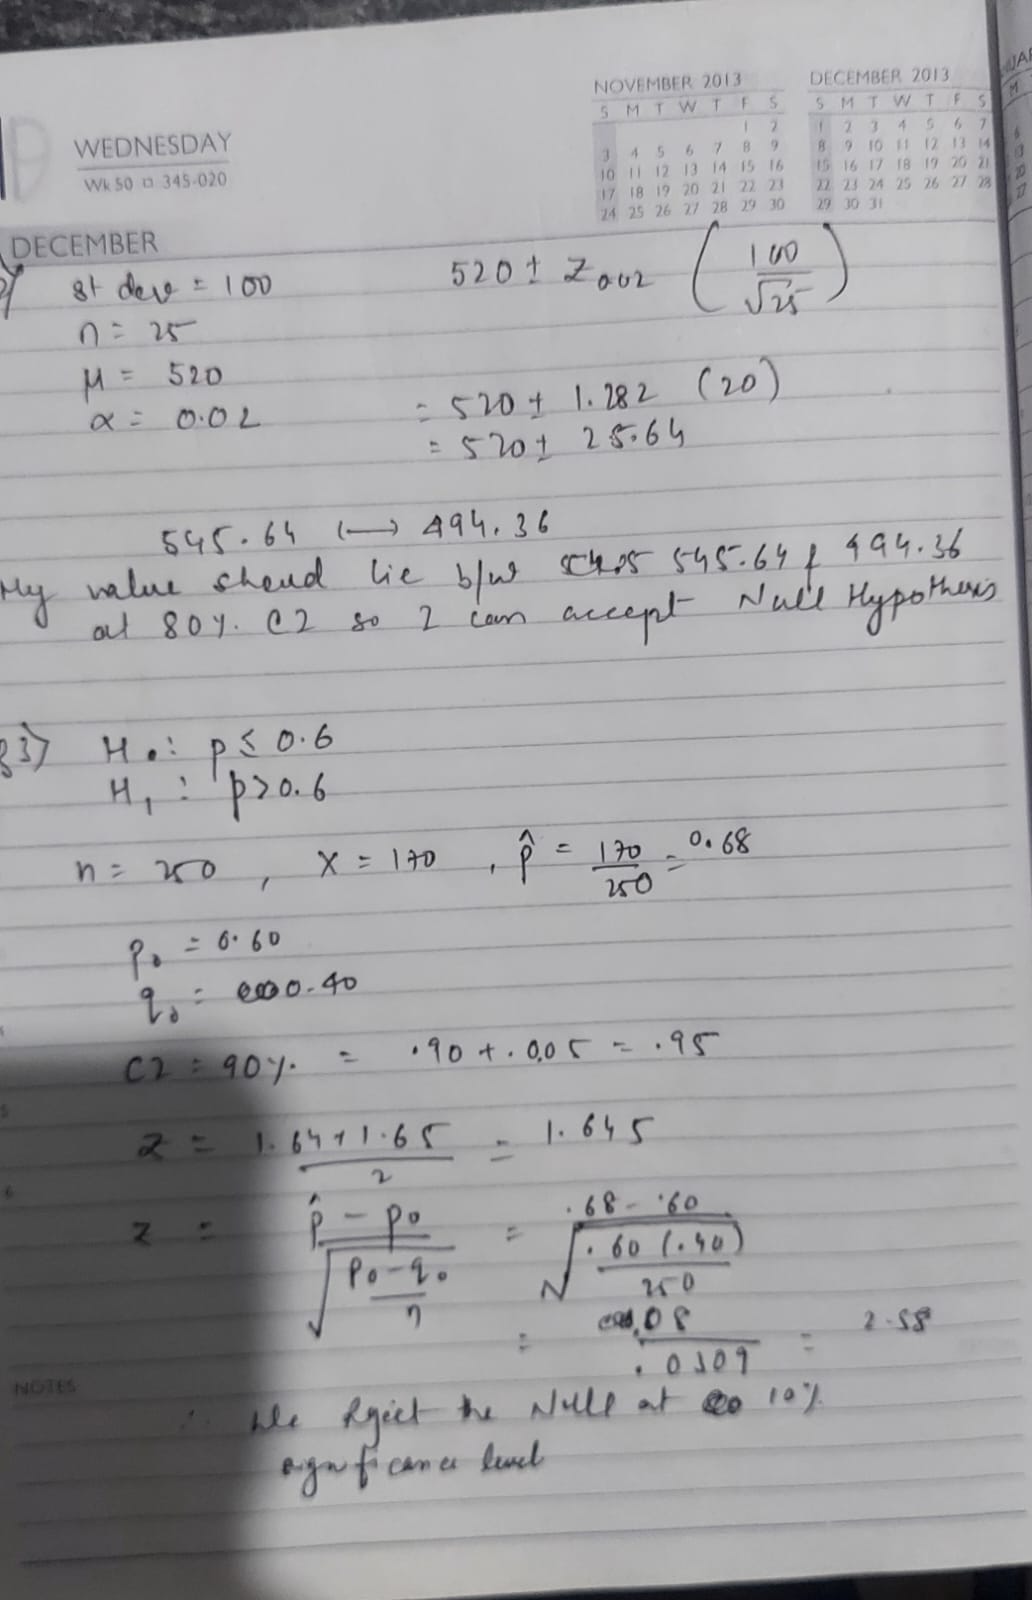 NOVEMBER 2013
S M T W T F S
1 2
3 4 5 6 7 8 9
10 11 12 13 14 15 16
17 18 19 20 21 22 23
24 25 26 27 28 29 30
DECEMBER 2013
S M T W T F S
1 2 3 4 5 6 7
8 9 10 11 12 13 14
15 16 17 18 19 20 21
22 23 24 25 26 27 28
29 30 31
WEDNESDAY
Wk 50 345-020
DECEMBER
st dev = 100
n = 25
μ = 520
α = 0.02
520 ± Z 0.02 (100/√25)
= 520 ± 1.282 (20)
= 520 ± 25.64
545.64 ↔ 494.36
My value shoud lie b/w 545.64 & 494.36
at 80%. CI so I can accept Null Hypothesis
Q3) H₀: p ≤ 0.6
H₁: p > 0.6
n = 250, X = 170, p̂ = 170/250 = 0.68
p₀ = 0.60
q₀ = 0.40
CI = 90%. = .90 + .005 = .95
Z = (1.64 + 1.65)/2 = 1.645
Z = (p̂ - p₀)/√((p₀ - q₀)/n) = (.68 - .60)/√(.60 (.40)/250)
= .08/.0309 = 2.58
NOTES
∴ We Reject the Null at 10%
significance level